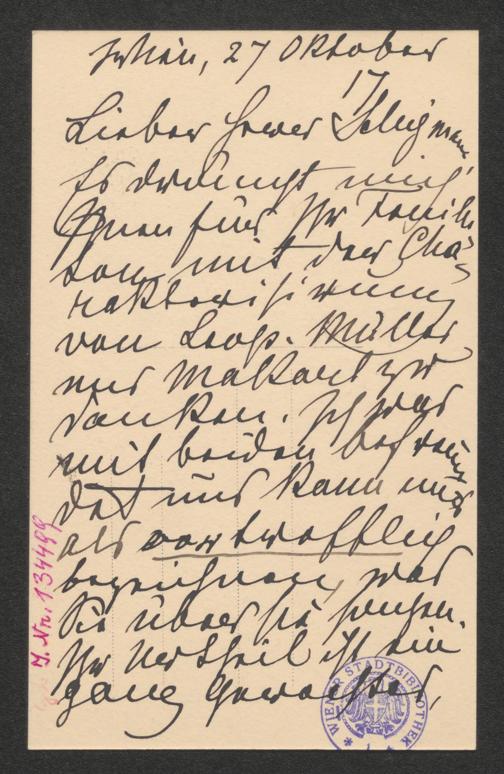 Wien, 27 Oktober
17
Lieber Herr Seligmann
Es draengt mich
Ihnen für Ihr Feuille
ton mit der Cha-
rakterisirung
von Leop. Müller
und Makart zu
danken. Ich war
mit beiden befreun
det und kann nur
als vortrefflich
bezeichnen, was
Sie über sie sagen.
Ihr Urtheil ist ein
ganz gerechtes,
J. Nr. 134499
WIENER STADTBIBLIOTHEK